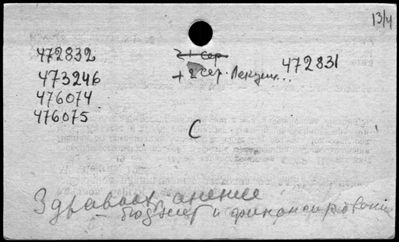 13/4
472832
2+ сер
473246
+ 2 сер. Лекции... 472831
476074
476075
С
Здравоохранение
— бюджет и финансирование